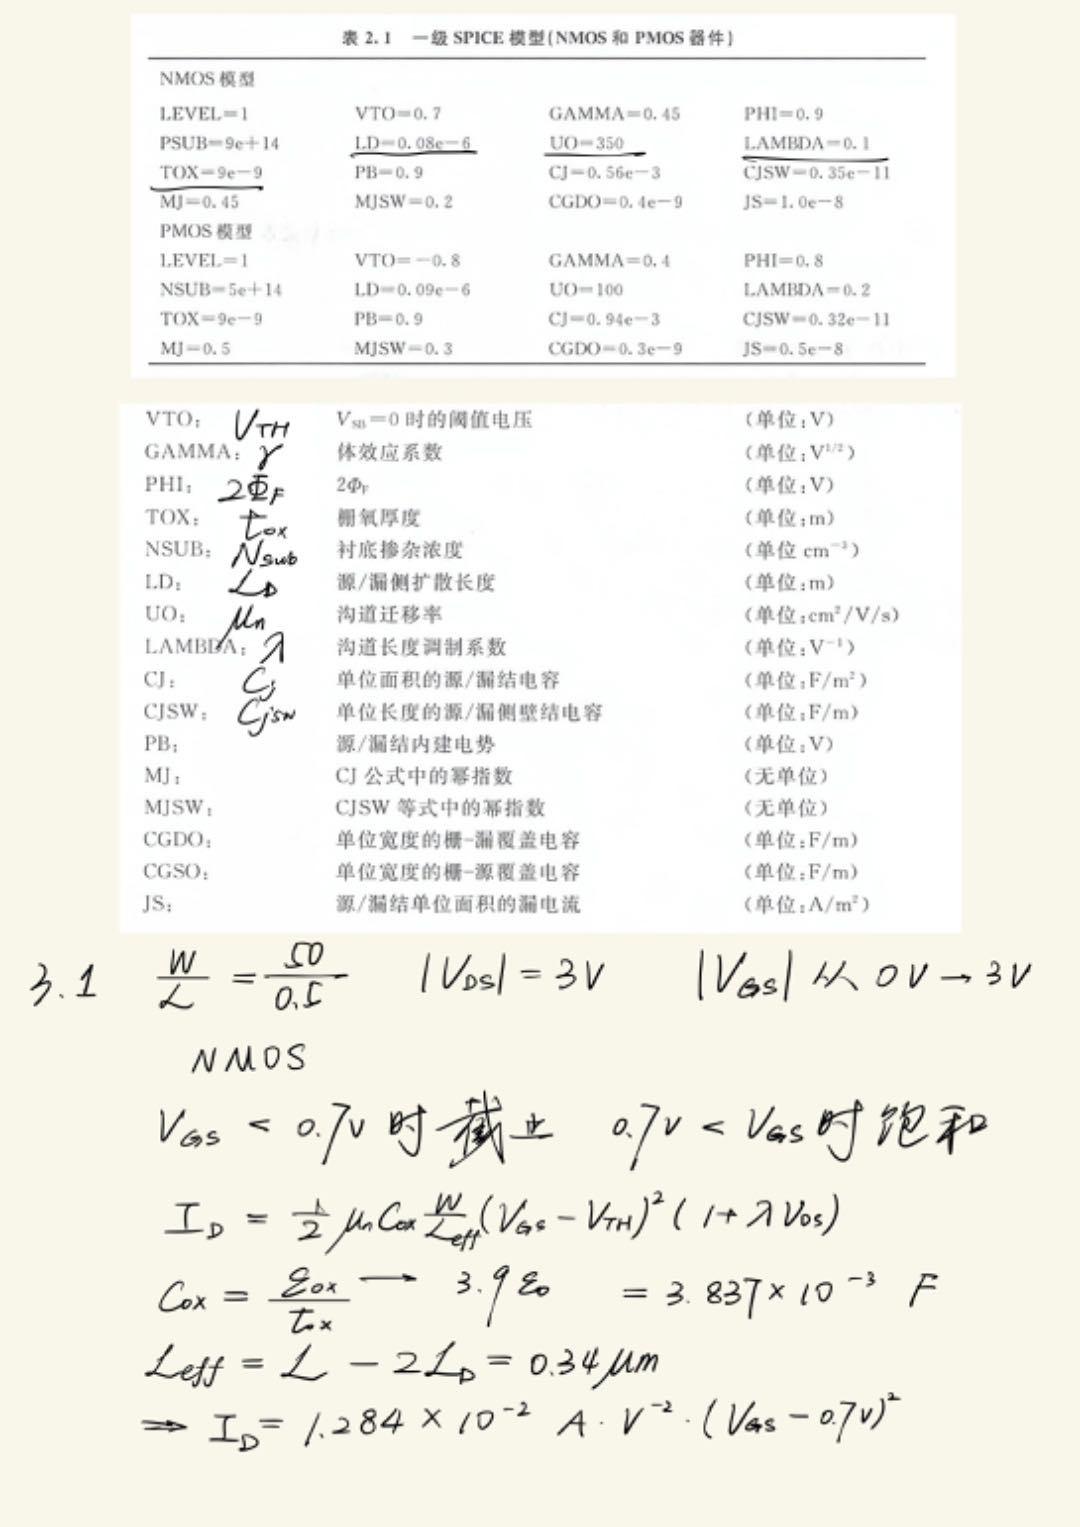 表 2.1 一级 SPICE 模型(NMOS 和 PMOS 器件)
NMOS 模型
LEVEL=1 VTO=0.7 GAMMA=0.45 PHI=0.9
PSUB=9e+14 LD=0.08e-6 UO=350 LAMBDA=0.1
TOX=9e-9 PB=0.9 CJ=0.56e-3 CJSW=0.35e-11
MJ=0.45 MJSW=0.2 CGDO=0.4e-9 JS=1.0e-8
PMOS 模型
LEVEL=1 VTO=-0.8 GAMMA=0.4 PHI=0.8
NSUB=5e+14 LD=0.09e-6 UO=100 LAMBDA=0.2
TOX=9e-9 PB=0.9 CJ=0.94e-3 CJSW=0.32e-11
MJ=0.5 MJSW=0.3 CGDO=0.3e-9 JS=0.5e-8
VTO: V_TH V_SB=0 时的阈值电压 (单位:V)
GAMMA: γ 体效应系数 (单位:V^1/2)
PHI: 2Φ_F 2Φ_F (单位:V)
TOX: t_ox 栅氧厚度 (单位:m)
NSUB: N_sub 衬底掺杂浓度 (单位 cm^-3)
LD: L_D 源/漏侧扩散长度 (单位:m)
UO: μn 沟道迁移率 (单位:cm²/V/s)
LAMBDA: λ 沟道长度调制系数 (单位:V^-1)
CJ: Cj 单位面积的源/漏结电容 (单位:F/m²)
CJSW: Cjsw 单位长度的源/漏侧壁结电容 (单位:F/m)
PB: 源/漏结内建电势 (单位:V)
MJ: CJ 公式中的幂指数 (无单位)
MJSW: CJSW 等式中的幂指数 (无单位)
CGDO: 单位宽度的栅-漏覆盖电容 (单位:F/m)
CGSO: 单位宽度的栅-源覆盖电容 (单位:F/m)
JS: 源/漏结单位面积的漏电流 (单位:A/m²)
3.1 W/L = 50/0.5 |V_DS| = 3V |V_GS| 从 0V → 3V
NMOS
V_GS < 0.7V 时 截止 0.7V < V_GS 时 饱和
I_D = 1/2 μn Cox W/Leff (V_GS - V_TH)² (1 + λ V_DS)
Cox = ε_ox/t_ox → 3.9 ε_0 = 3.837 × 10^-3 F
Leff = L - 2L_D = 0.34 μm
⇒ I_D = 1.284 × 10^-2 A · V^-2 · (V_GS - 0.7V)²